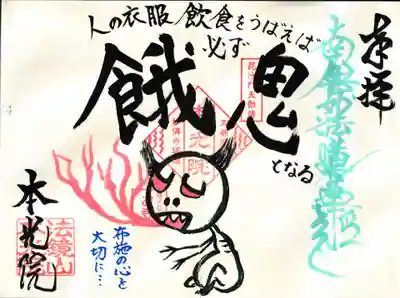 奉拝
人の衣服飲食をうばえば
必ず
餓鬼
となる
毘沙門天
本光院
布施の心を
大切に…
本光院
法鏡山